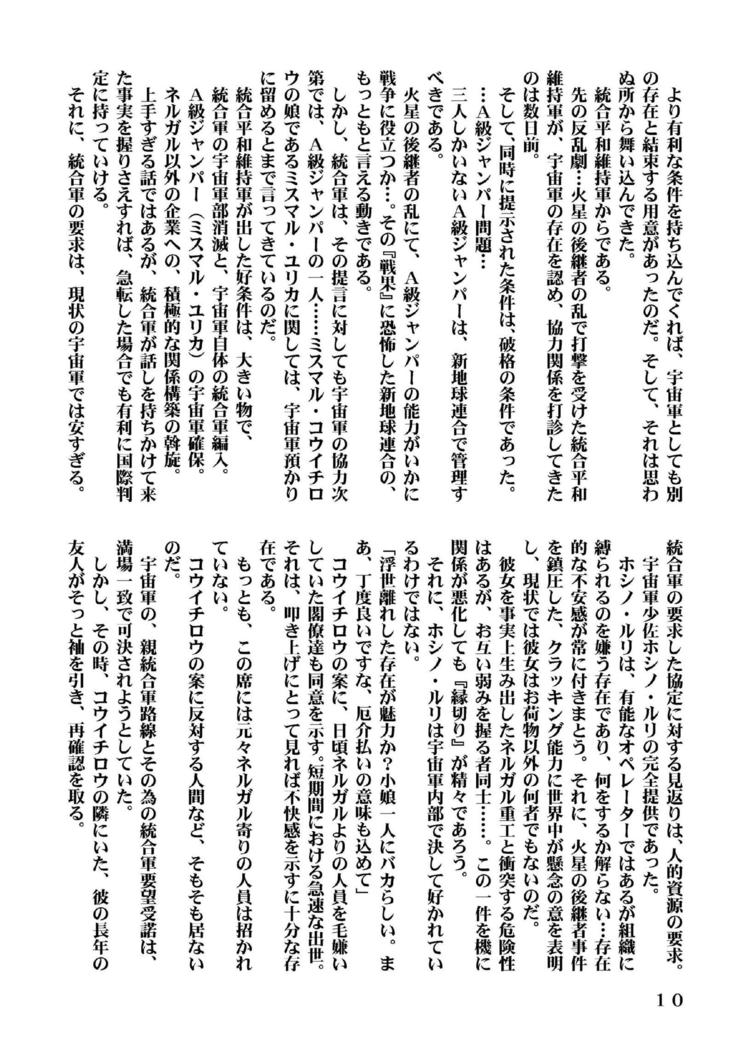 より有利な条件を持ち込んでくれば、宇宙軍としても別
の存在と結束する用意があったのだ。そして、それは思わ
ぬ所から舞い込んできた。
統合平和維持軍からである。
先の反乱劇…火星の後継者の乱で打撃を受けた統合平和
維持軍が、宇宙軍の存在を認め、協力関係を打診してきた
のは数日前。
そして、同時に提示された条件は、破格の条件であった。
…Ａ級ジャンパー問題…
三人しかいないＡ級ジャンパーは、新地球連合で管理す
べきである。
火星の後継者の乱にて、Ａ級ジャンパーの能力がいかに
戦争に役立つか…。その『戦果』に恐怖した新地球連合の、
もっともと言える動きである。
しかし、統合軍は、その提言に対しても宇宙軍の協力次
第では、Ａ級ジャンパーの一人……ミスマル・コウイチロ
ウの娘であるミスマル・ユリカに関しては、宇宙軍預かり
に留めるとまで言ってきているのだ。
統合平和維持軍が出した好条件は、大きい物で、
統合軍の宇宙軍部消滅と、宇宙軍自体の統合軍編入。
Ａ級ジャンパー（ミスマル・ユリカ）の宇宙軍確保。
ネルガル以外の企業への、積極的な関係構築の斡旋。
上手すぎる話ではあるが、統合軍が話しを持ちかけて来
た事実を握りさえすれば、急転した場合でも有利に国際判
定に持っていける。
それに、統合軍の要求は、現状の宇宙軍では安すぎる。
統合軍の要求した協定に対する見返りは、人的資源の要求。
宇宙軍少佐ホシノ・ルリの完全提供であった。
ホシノ・ルリは、有能なオペレーターではあるが組織に
縛られるのを嫌う存在であり、何をするか解らない…存在
的な不安感が常に付きまとう。それに、火星の後継者事件
を鎮圧した、クラッキング能力に世界中が懸念の意を表明
し、現状では彼女はお荷物以外の何者でもないのだ。
彼女を事実上生み出したネルガル重工と衝突する危険性
はあるが、お互い弱みを握る者同士……。この一件を機に
関係が悪化しても『縁切り』が精々であろう。
それに、ホシノ・ルリは宇宙軍内部で決して好かれてい
るわけではない。
「浮世離れした存在が魅力か？小娘一人にバカらしい。ま
あ、丁度良いですな、厄介払いの意味も込めて」
コウイチロウの案に、日頃ネルガルよりの人員を毛嫌い
していた閣僚達も同意を示す。短期間における急速な出世。
それは、叩き上げにとって見れば不快感を示すに十分な存
在である。
もっとも、この席には元々ネルガル寄りの人員は招かれ
ていない。
コウイチロウの案に反対する人間など、そもそも居ない
のだ。
宇宙軍の、親統合軍路線とその為の統合軍要望受諾は、
満場一致で可決されようとしていた。
しかし、その時、コウイチロウの隣にいた、彼の長年の
友人がそっと袖を引き、再確認を取る。
１０